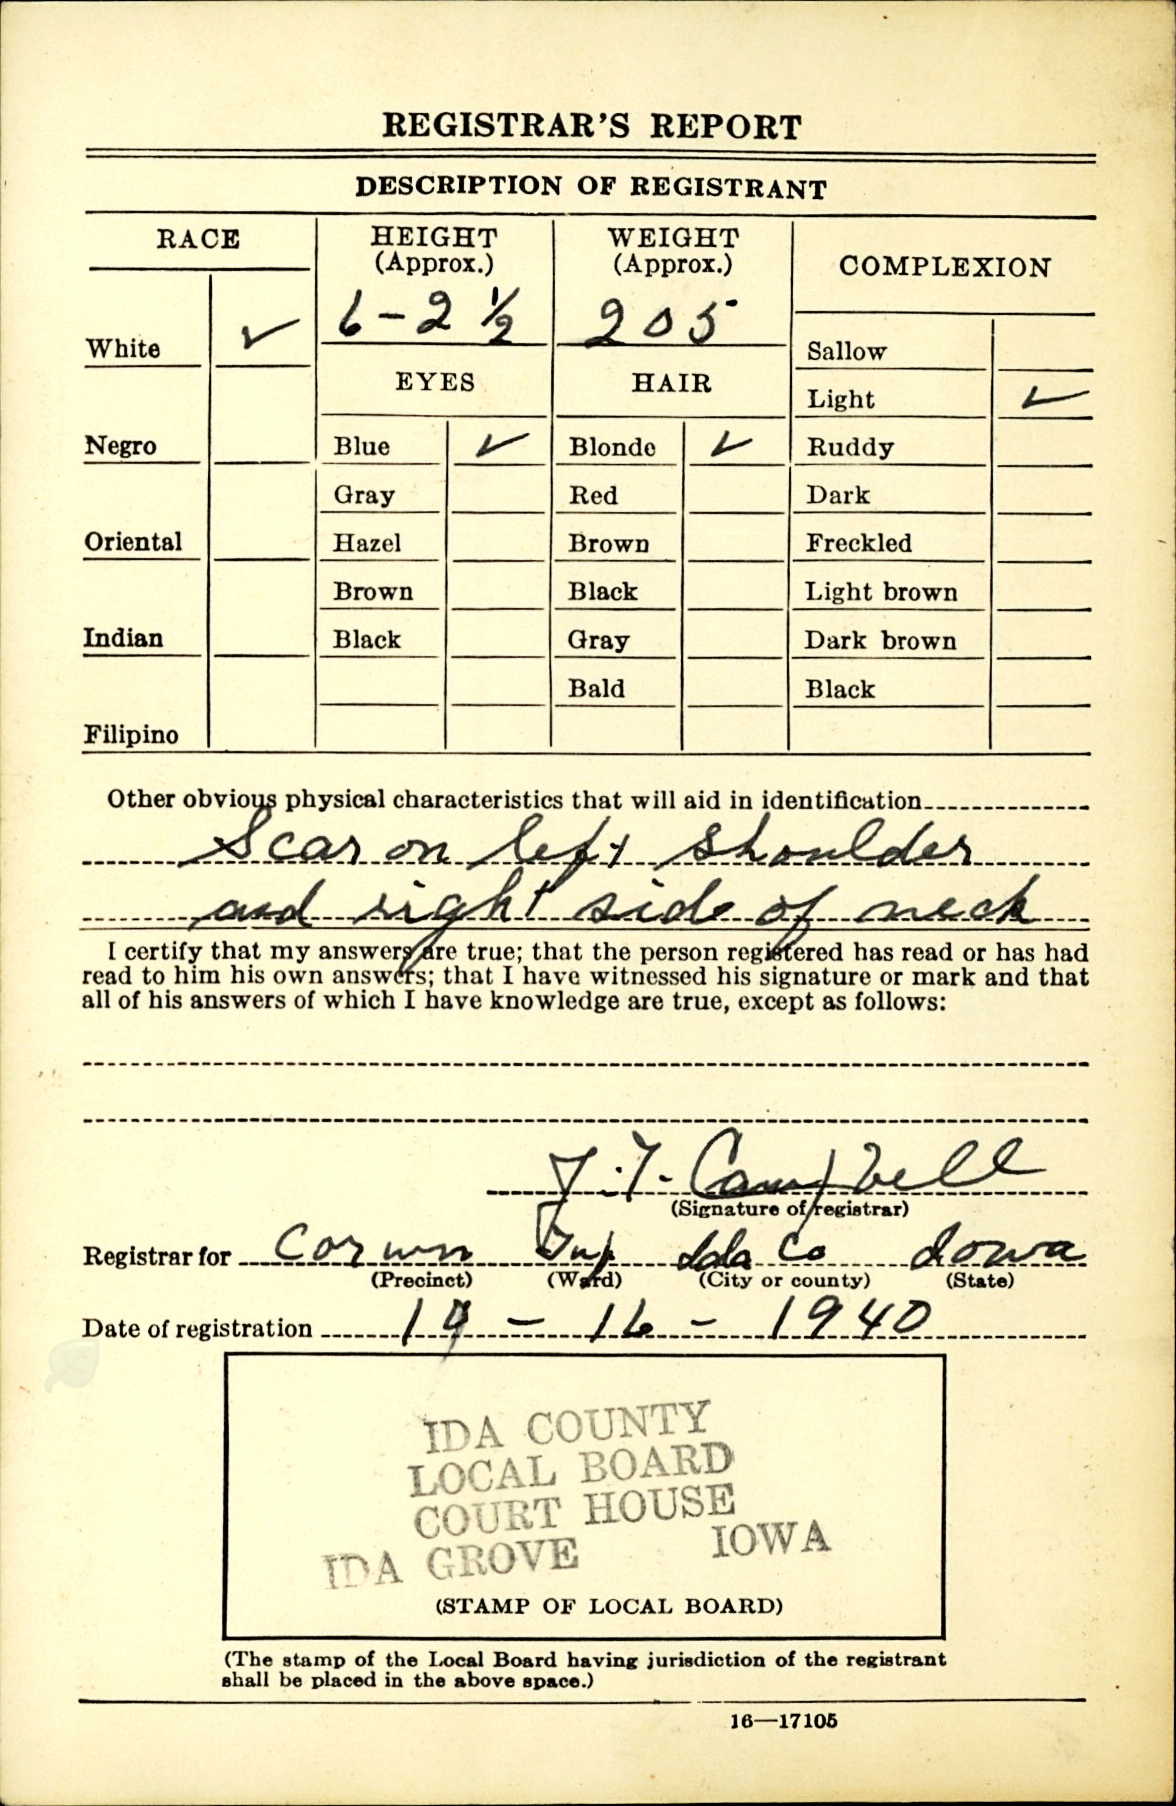 REGISTRAR'S REPORT
DESCRIPTION OF REGISTRANT
RACE
HEIGHT
(Approx.)
WEIGHT
(Approx.)
COMPLEXION
6-2 ½
205
White ✓
Sallow
EYES
HAIR
Light ✓
Negro
Blue ✓
Blonde ✓
Ruddy
Gray
Red
Dark
Oriental
Hazel
Brown
Freckled
Brown
Black
Light brown
Indian
Black
Gray
Dark brown
Bald
Black
Filipino
Other obvious physical characteristics that will aid in identification
Scar on left shoulder
and right side of neck
I certify that my answers are true; that the person registered has read or has had
read to him his own answers; that I have witnessed his signature or mark and that
all of his answers of which I have knowledge are true, except as follows:
Campbell
(Signature of registrar)
Registrar for Corwin Twp Ida Co Iowa
(Precinct) (Ward) (City or county) (State)
Date of registration - 16 - 1940
IDA COUNTY
LOCAL BOARD
COURT HOUSE
IDA GROVE IOWA
(STAMP OF LOCAL BOARD)
(The stamp of the Local Board having jurisdiction of the registrant
shall be placed in the above space.)
16—17105